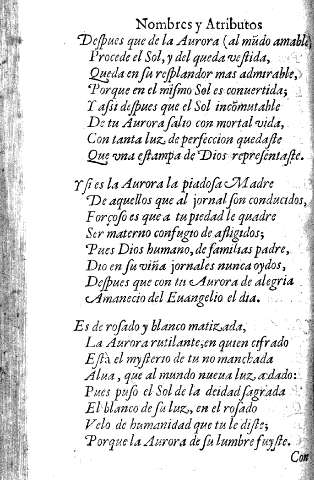 Nombres y Atributos
Despues que de la Aurora (al mũdo amable)
Procede el Sol, y del queda vestida,
Queda en su resplandor mas admirable,
Porque en el mismo Sol es conuertida;
Y assi despues que el Sol incõmutable
De tu Aurora salio con mortal vida,
Con tanta luz de perfeccion quedaste
Que vna estampa de Dios representaste.
Y si es la Aurora la piadosa Madre
De aquellos que al jornal son conducidos,
Forçoso es que a tu piedad le quadre
Ser materno confugio de afligidos;
Pues Dios humano, de familias padre,
Dio en su viña jornales nunca oydos,
Despues que con tu Aurora de alegria
Amanecio del Euangelio el dia.
Es de rosado y blanco matizada,
La Aurora rutilante; en quien cifrado
Està el mysterio de tu no manchada
Alua, que al mundo nueua luz a dado:
Pues puso el Sol de la deidad sagrada
El blanco de su luz, en el rosado
Velo de humanidad que tu le diste;
Porque la Aurora de su lumbre fuyste.
Con